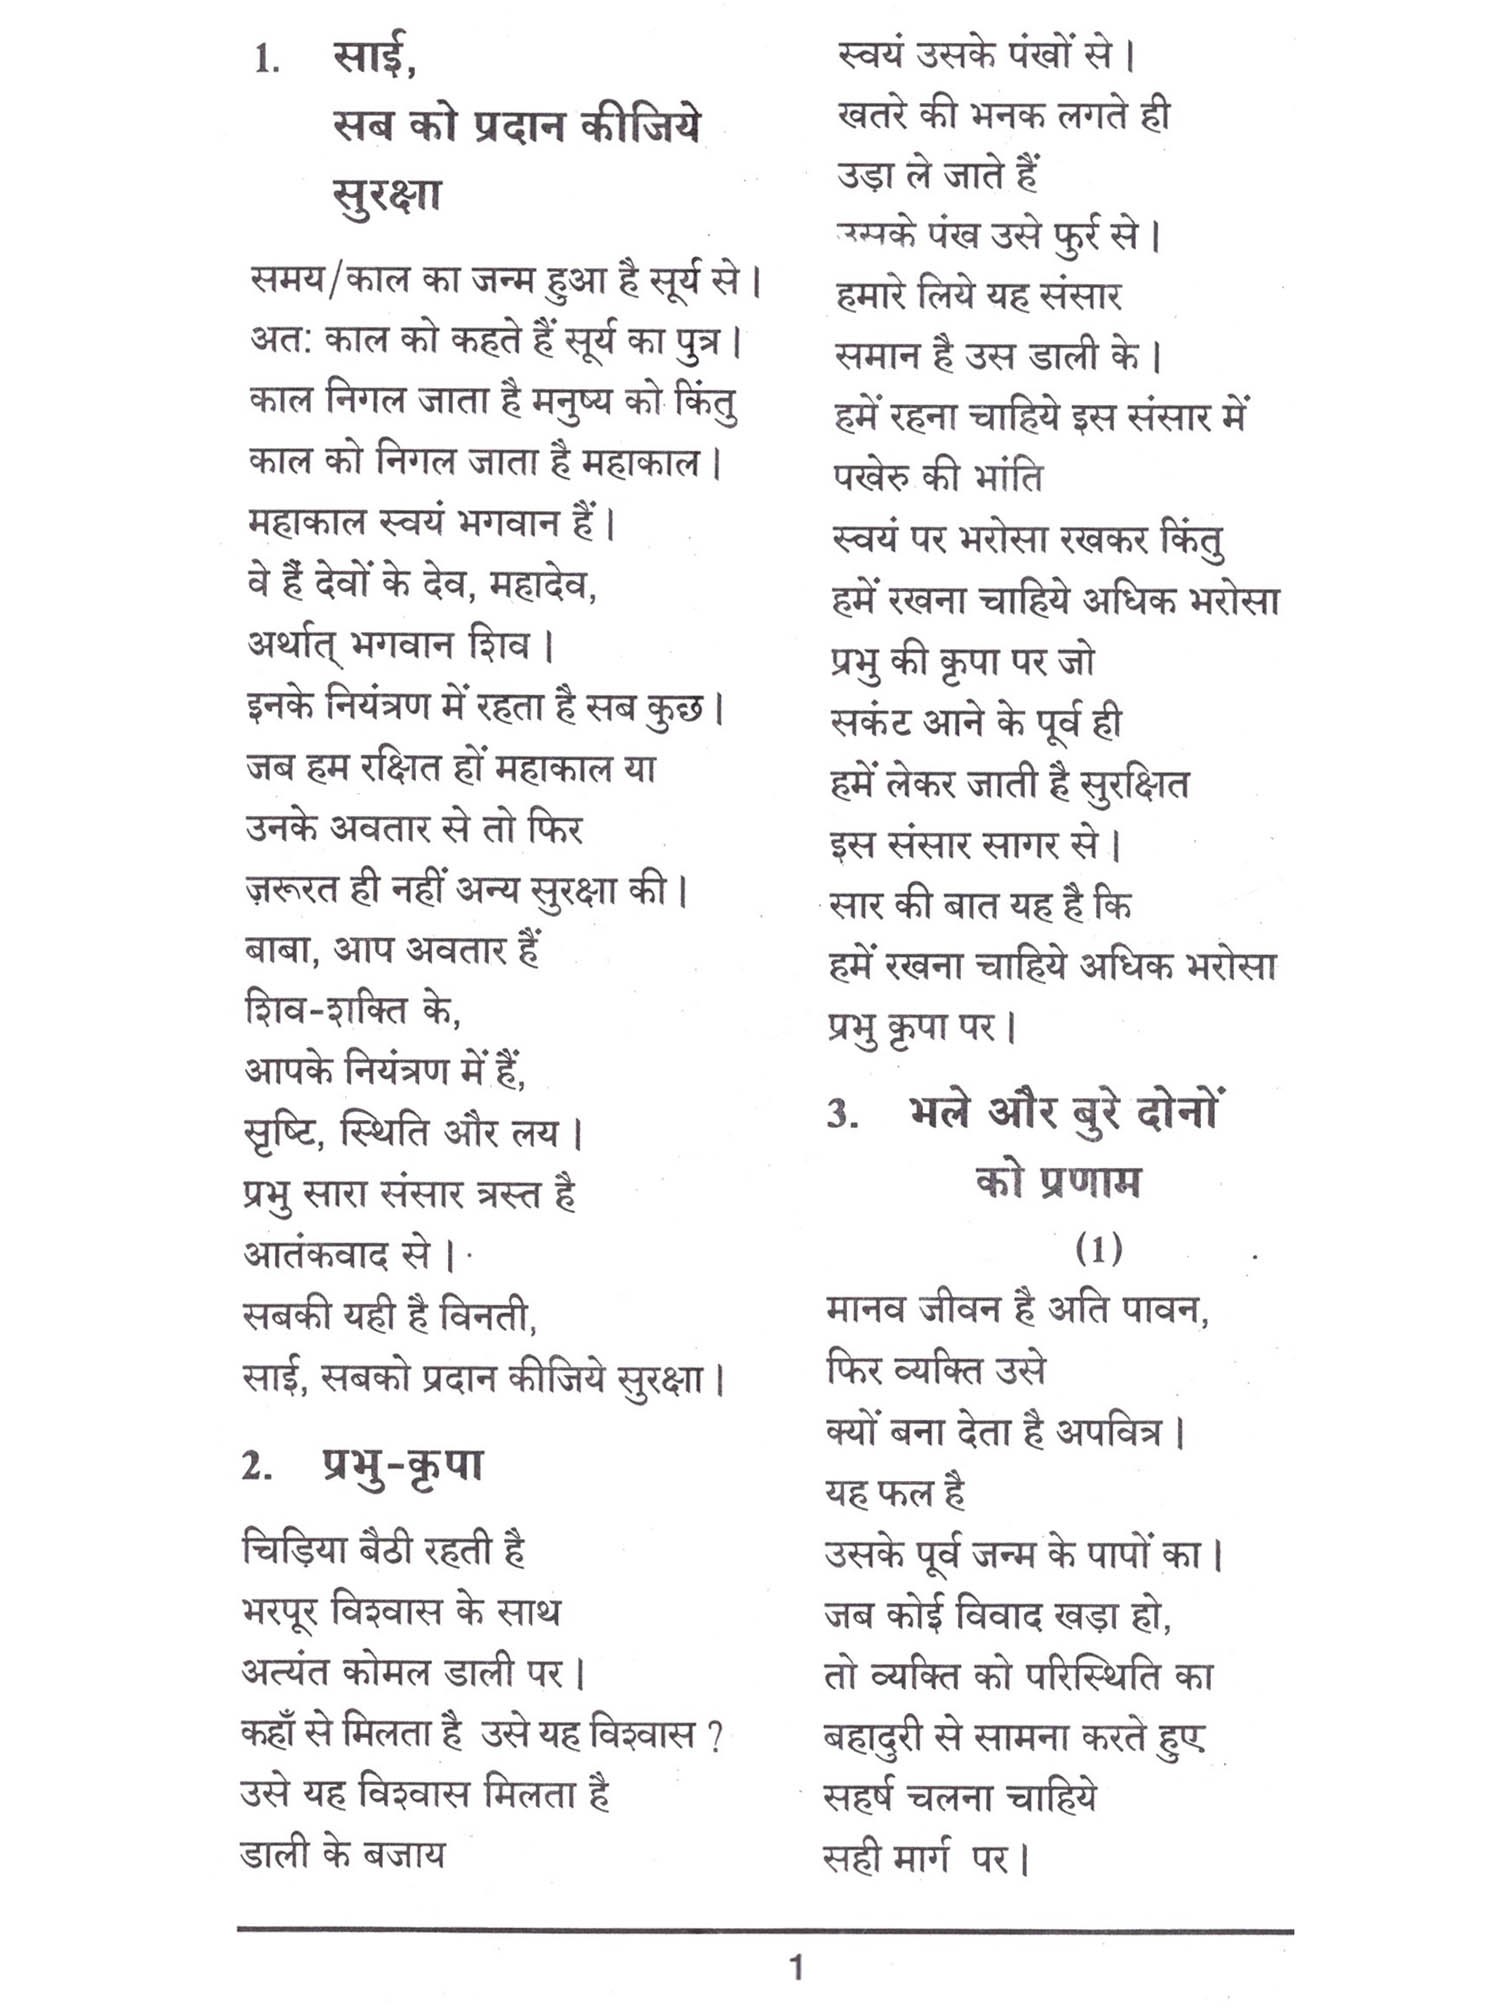 1. साई,
सब को प्रदान कीजिये
सुरक्षा
समय/काल का जन्म हुआ है सूर्य से।
अतः काल को कहते हैं सूर्य का पुत्र।
काल निगल जाता है मनुष्य को किंतु
काल को निगल जाता है महाकाल।
महाकाल स्वयं भगवान हैं।
वे हैं देवों के देव, महादेव,
अर्थात् भगवान शिव।
इनके नियंत्रण में रहता है सब कुछ।
जब हम रक्षित हों महाकाल या
उनके अवतार से तो फिर
ज़रूरत ही नहीं अन्य सुरक्षा की।
बाबा, आप अवतार हैं
शिव-शक्ति के,
आपके नियंत्रण में हैं,
सृष्टि, स्थिति और लय।
प्रभु सारा संसार त्रस्त है
आतंकवाद से।
सबकी यही है विनती,
साई, सबको प्रदान कीजिये सुरक्षा।
2. प्रभु-कृपा
चिड़िया बैठी रहती है
भरपूर विश्वास के साथ
अत्यंत कोमल डाली पर।
कहाँ से मिलता है उसे यह विश्वास ?
उसे यह विश्वास मिलता है
डाली के बजाय
स्वयं उसके पंखों से।
खतरे की भनक लगते ही
उड़ा ले जाते हैं
उसके पंख उसे फुर्र से।
हमारे लिये यह संसार
समान है उस डाली के।
हमें रहना चाहिये इस संसार में
पखेरु की भांति
स्वयं पर भरोसा रखकर किंतु
हमें रखना चाहिये अधिक भरोसा
प्रभु की कृपा पर जो
सकंट आने के पूर्व ही
हमें लेकर जाती है सुरक्षित
इस संसार सागर से।
सार की बात यह है कि
हमें रखना चाहिये अधिक भरोसा
प्रभु कृपा पर।
3. भले और बुरे दोनों
को प्रणाम
(1)
मानव जीवन है अति पावन,
फिर व्यक्ति उसे
क्यों बना देता है अपवित्र।
यह फल है
उसके पूर्व जन्म के पापों का।
जब कोई विवाद खड़ा हो,
तो व्यक्ति को परिस्थिति का
बहादुरी से सामना करते हुए
सहर्ष चलना चाहिये
सही मार्ग पर।
1